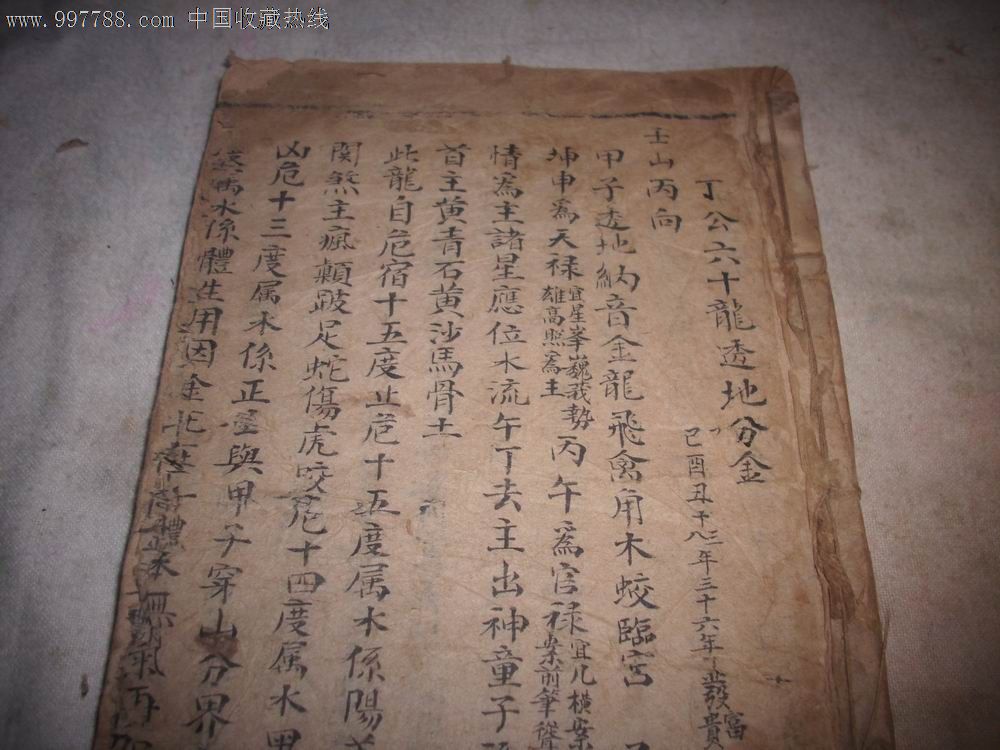 www.997788.com 中国收藏热线
丁公六十龍透地分金
巳酉丑十三八年三十六年發富貴
壬山丙向
甲子透地納音金龍飛禽用木蛟臨宮
坤申為天禄宜星峯巍峩勢雄高照為主丙午為官禄宜几横案案前筆聳
情為主諸星應位水流午丁去主出神童子
首主黄青石黄沙馬骨土
此龍自危宿十五度止危十五度属木係陽
関煞主瘋顛跛足蛇傷虎咬危十四度属水甲
凶危十三度属木係正與甲子穿山分界
水係體生用因金